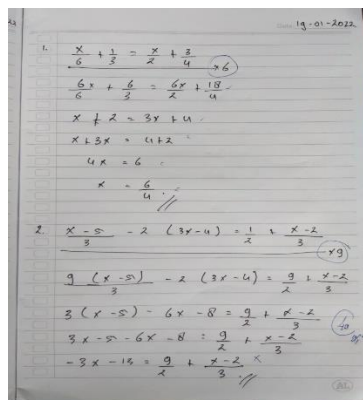 Date: 19-01-2022
1. x/6 + 1/3 = x/2 + 3/4
×6
6x/6 + 6/3 = 6x/2 + 18/4
x + 2 = 3x + 4
x + 3x = 4 + 2
4x = 6
x = 6/4
2. x - 5/3 - 2 (3x - 4) = 1/2 + x - 2/3
×9
9 (x - 5)/3 - 2 (3x - 4) = 9/2 + x - 2/3
3 (x - 5) - 6x - 8 = 9/2 + x - 2/3
3x - 5 - 6x - 8 = 9/2 + x - 2/3
-3x - 13 = 9/2 + x - 2/3 ×